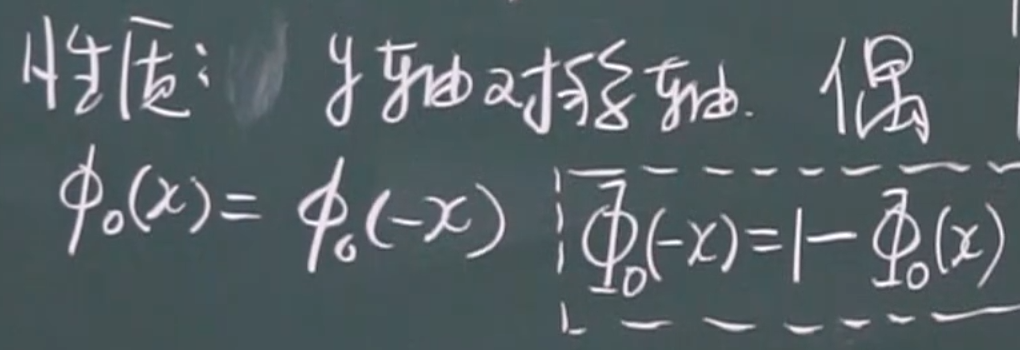 性质: y轴对称轴. 偶
ϕ₀(x) = ϕ₀(-x) Φ₀(-x)=1-Φ₀(x)